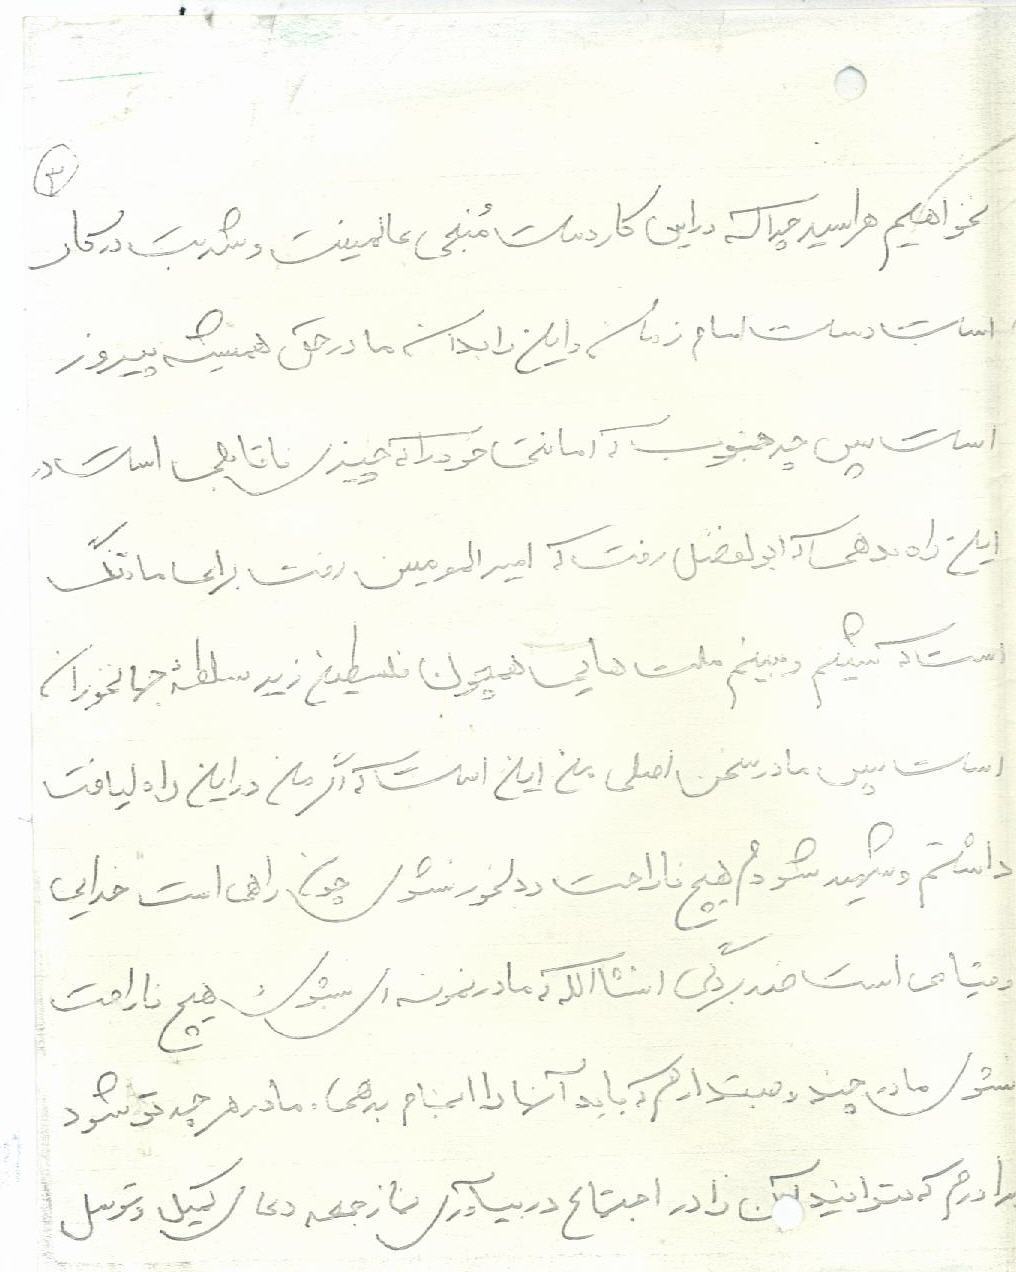 ۳
نخواهیم هراسید چراکه دراین کار دست مُنجی عالمیت وبشریت درکار
است دست امام زمان واین رابدان مادر حق همیشه پیروز
است پس چه خوب که امانتی خودرا که چیزی ناقابلی است در
این راه بدهی که ابوالفضل رفت که امیرالمومنین رفت برای ما ننگ
است که بشینیم وببینم ملت هایی همچون فلسطین زیر سلطهٔ جهانخوران
است پس مادر سخن اصلی من این است که اگر من دراین راه لیاقت
داشتم وشهید شودم هیچ ناراحت ودلخور نشوی چون راهی است خدایی
وقیامی است ضد بردگی انشاالله که مادر نمونه ای بشوی هیچ ناراحت
نشوی مادر چند وصیت دارم که باید آنها را انجام بدهی، مادر هر چه تو شود
برادرم که بتوانید آن را در اجتماع دربیاوری نماز جمعه دعای کمیل وتوسل